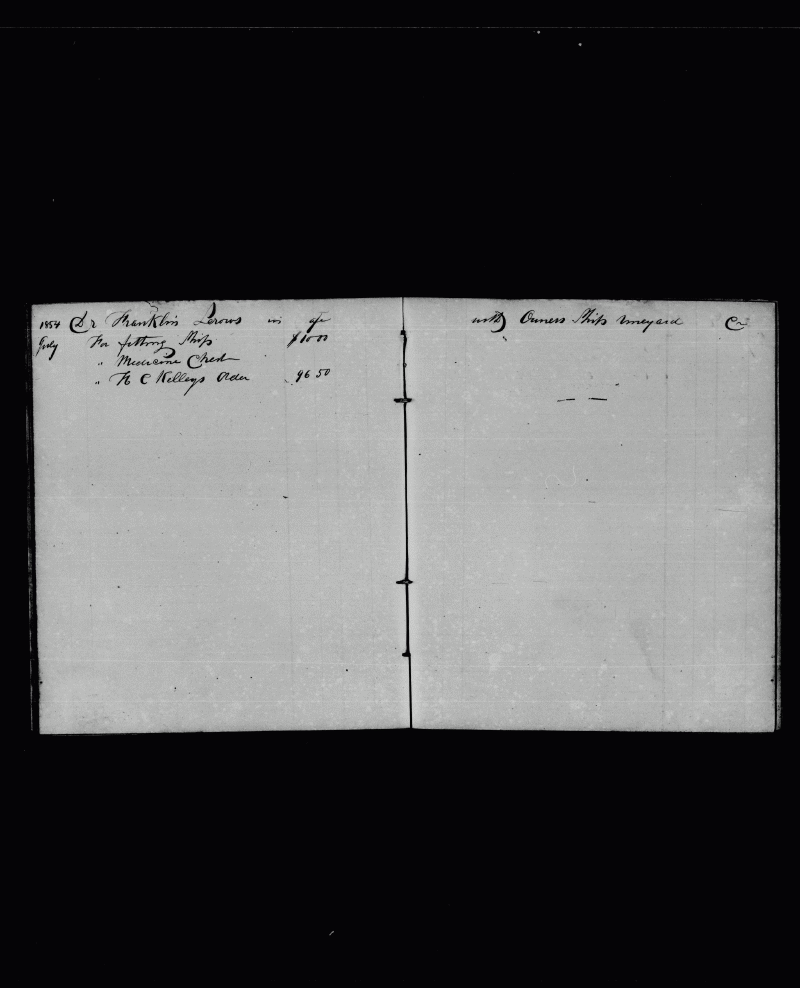 1854 Dr Franklin Lerows in a/c with Owners Ship Vineyard Cr
July For fitting Ship $10 00
" Medicine Chest
" H C Kelleys Order 96 50